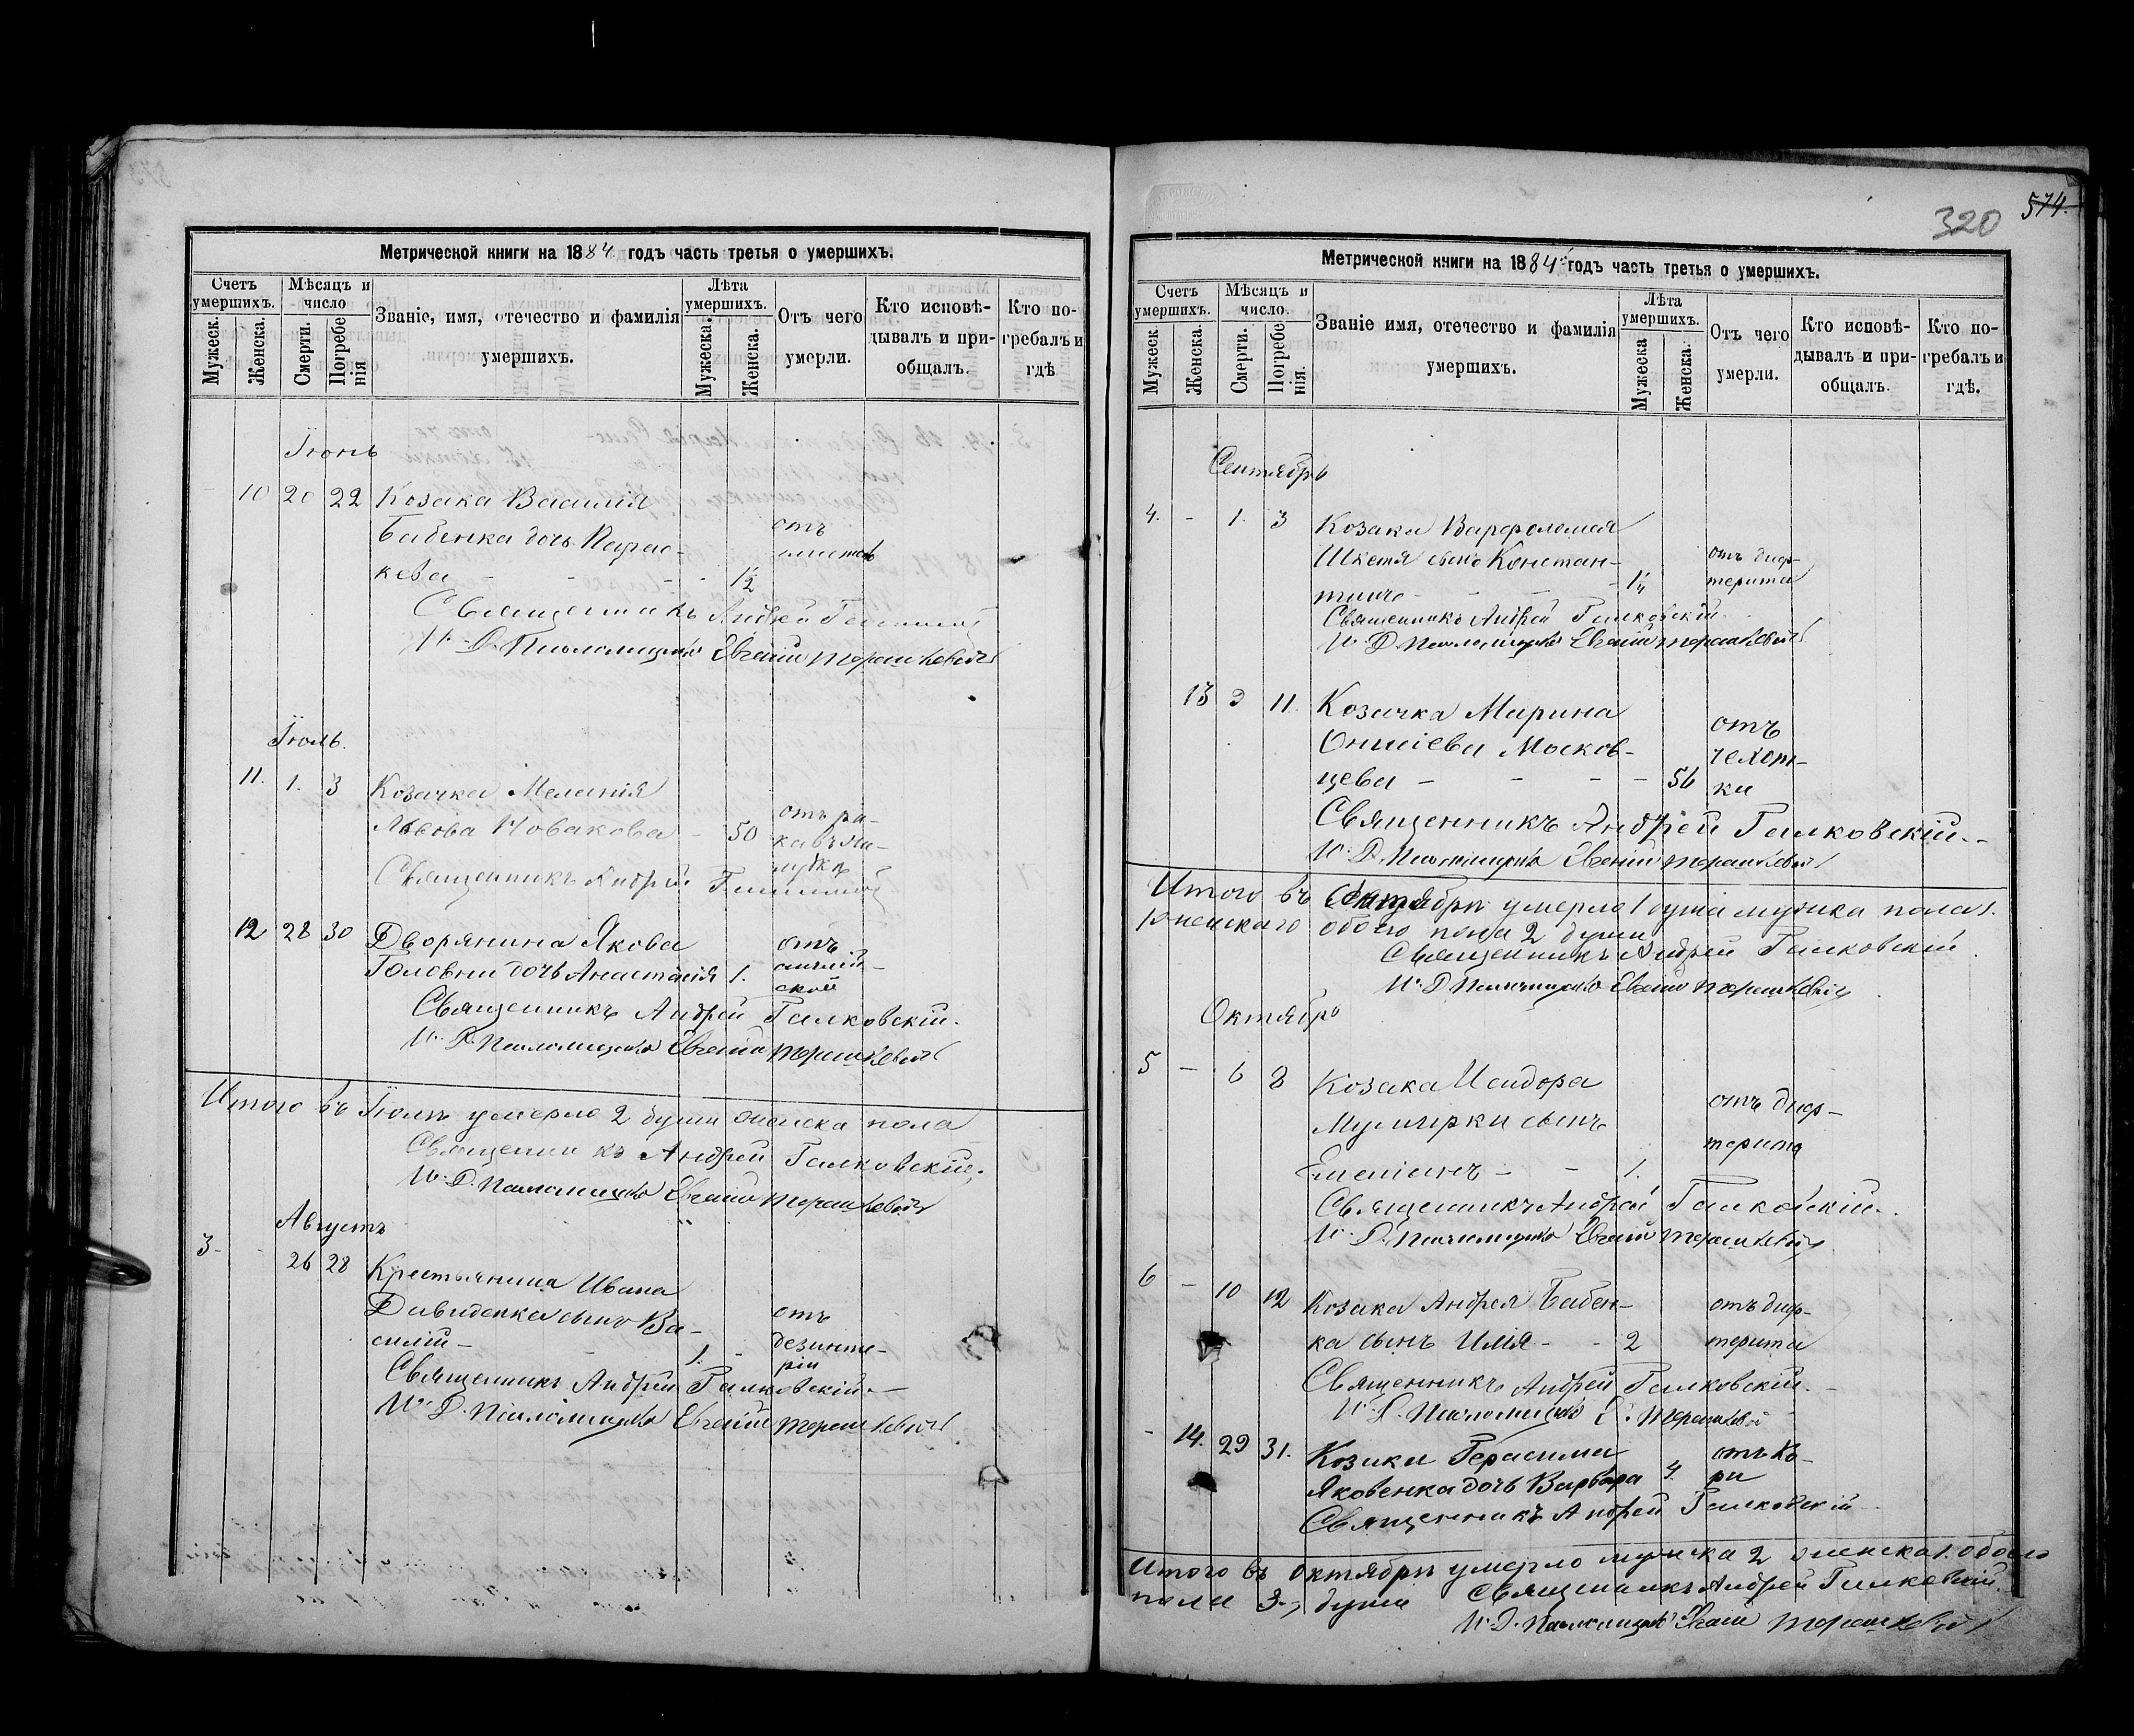 Метрической книги на 1884 годъ часть третья о умершихъ.
Счетъ умершихъ.
Мужеск.
Женска.
Мѣсяцъ и число
Смерти.
Погребенія
Званіе, имя, отечество и фамилія умершихъ.
Лѣта умершихъ.
Мужеска.
Женска.
Отъ чего умерли.
Кто исповѣдывалъ и приобщалъ.
Кто погребалъ и гдѣ
Іюнь
10 20 22 Козака Василія
Бабенка дочь Парас-
кева - - - - 1½
отъ
Священникъ Андрей
И. Д. Псаломщика Евгеній
Іюль.
11. 1. 3 Козачка Меланія
Львова Новакова - 50
отъ ра-
Священникъ Андрей
12 28 30 Дворянина Якова
Головни дочь Анастасія 1.
отъ
Священникъ Андрей Галковскій.
И. Д. Псаломщика Евгеній
Итого въ Іюлѣ умерло 2 души женска пола
Священникъ Андрей Галковскій.
И. Д. Псаломщика Евгеній
Августъ
3 - 26 28 Крестьянина Ивана
Давиденка сынъ Ва-
силій - - 1. -
отъ
дезинте-
ріи
Священникъ Андрей Галковскій.
И. Д. Псаломщика Евгеній
574.
320
Метрической книги на 1884 годъ часть третья о умершихъ.
Счетъ умершихъ.
Мужеск
Женска.
Мѣсяцъ и число.
Смерти.
Погребенія.
Званіе имя, отечество и фамилія умершихъ.
Лѣта умершихъ.
Мужеска
Женска.
Отъ чего умерли.
Кто исповѣдывалъ и приобщалъ.
Кто погребалъ и гдѣ.
Сентябрь
4. - 1. 3 Козака Варфоломея
сынъ Констан-
тинъ - - - - 1¼
отъ диф-
терита
Священникъ Андрей Галковскій
И. Д. Псаломщика Евгеній
13 9 11. Козачка Марина
Онисіева Москов-
цева - - - - 56
отъ
чехот-
ки
Священникъ Андрей Галковскій.
И. Д. Псаломщика Евгеній
Итого въ Сентябрѣ умерло 1 душа мужска пола 1.
женскаго обоего пола 2 души
Священникъ Андрей Галковскій.
И. Д. Псаломщика Евгеній
Октябрь
5 - 6 8 Козака Исидора
сынъ
Емеліанъ - - 1.
отъ диф-
терита
Священникъ Андрей Галковскій.
И. Д. Псаломщика Евгеній
6 - 10 12 Козака Андрея Бабен-
ка сынъ Илія - - 2
отъ диф-
терита
Священникъ Андрей Галковскій.
И. Д. Псаломщика Е.
- 14. 29 31. Козака Герасима
Яковенка дочь Варвара 4.
отъ ко-
ри
Священникъ Андрей Галковскій
Итого въ Октябрѣ умерло мужска 2 женска 1. обоего
пола 3 души Священникъ Андрей Галковскій.
И. Д. Псаломщика Евгеній